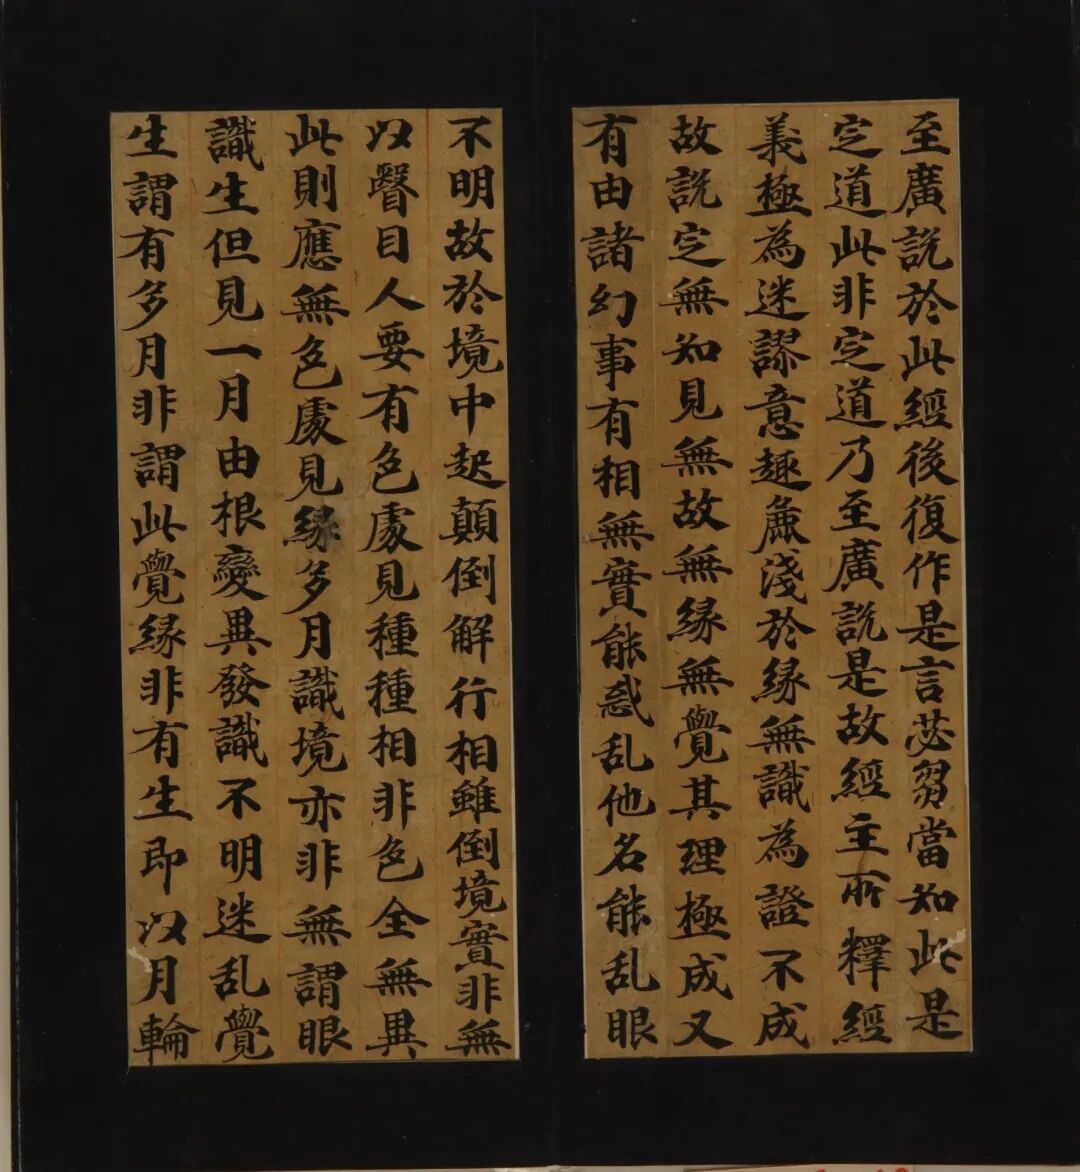 至廣說於此經後復作是言苾芻當知此是
定道此非定道乃至廣說是故經主所釋經
義極為迷謬意趣麁淺於緣無識為證不成
故說定無知見無故無緣無覺其理極成又
有由諸幻事有相無實能惑乱他名能乱眼
不明故於境中起顛倒解行相雖倒境實非無
以瞖目人要有色處見種種相非色全無異
此則應無色處見緣多月識境亦非無謂眼
識生但見一月由根變異發識不明迷乱覺
生謂有多月非謂此覺緣非有生即以月輪